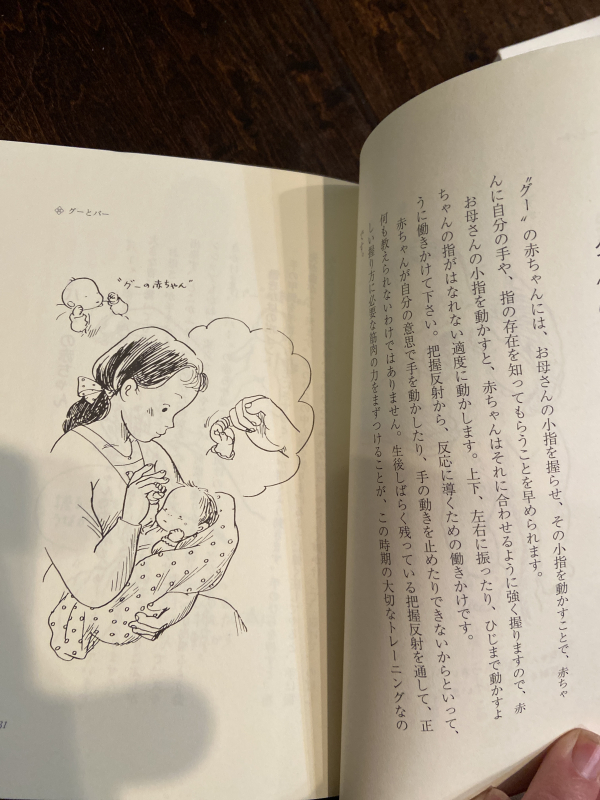 "グー"の赤ちゃんには、お母さんの小指を握らせ、その小指を動かすことで、赤ちゃ
んに自分の手や、指の存在を知ってもらうことを早められます。
お母さんの小指を動かすと、赤ちゃんはそれに合わせるように強く握りますので、赤
ちゃんの指がはなれない適度に動かします。上下、左右に振ったり、ひじまで動かすよ
うに働きかけて下さい。把握反射から、反応に導くための働きかけです。
赤ちゃんが自分の意思で手を動かしたり、手の動きを止めたりできないからといって、
何も教えられないわけではありません。生後しばらく残っている把握反射を通して、正
しい握り方に必要な筋肉の力をまずつけることが、この時期の大切なトレーニングなの
です。
グーとパー
"グーの赤ちゃん"